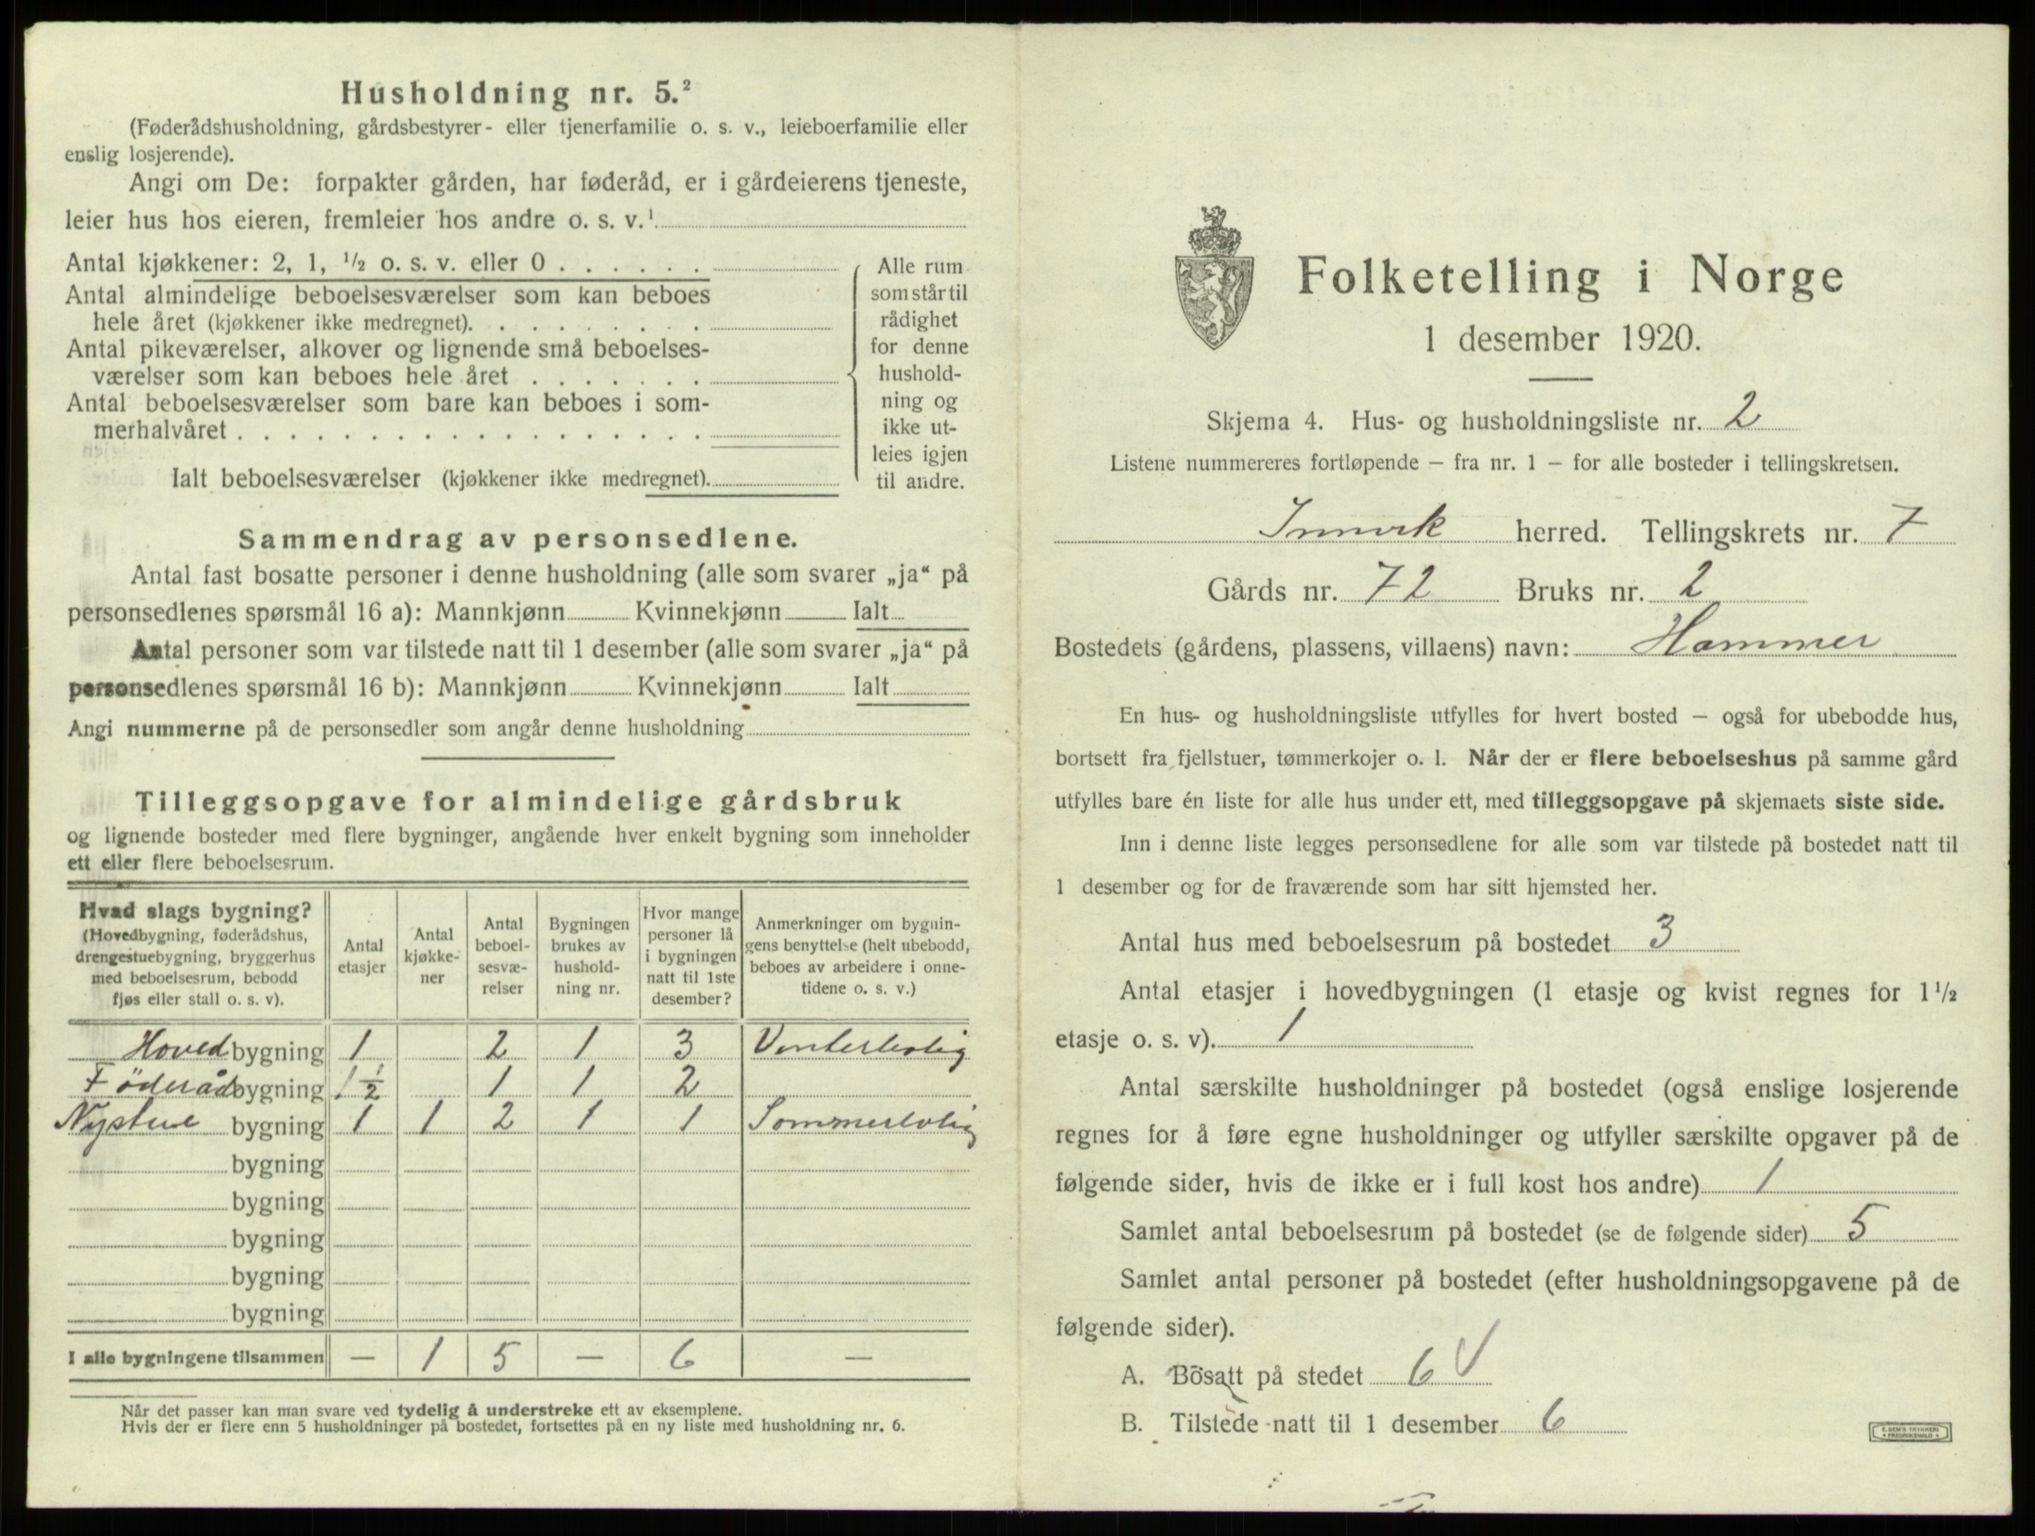 Husholdning nr. 5.²
(Føderådshusholdning, gårdsbestyrer- eller tjenerfamilie o. s. v., leieboerfamilie eller
enslig losjerende).
Angi om De: forpakter gården, har føderåd, er i gårdeierens tjeneste,
leier hus hos eieren, fremleier hos andre o. s. v.¹
Antal kjøkkener: 2, 1, ½ o. s. v. eller 0 . . . . . .
Antal almindelige beboelsesværelser som kan beboes
hele året (kjøkkener ikke medregnet). . . . . . . . .
Antal pikeværelser, alkover og lignende små beboelses-
værelser som kan beboes hele året . . . . . . .
Antal beboelsesværelser som bare kan beboes i som-
merhalvåret . . . . . . . . . . . . . . . . . .
Ialt beboelsesværelser (kjøkkener ikke medregnet).
Alle rum
som står til
rådighet
for denne
hushold-
ning og
ikke ut-
leies igjen
til andre.
Sammendrag av personsedlene.
Antal fast bosatte personer i denne husholdning (alle som svarer „ja“ på
personsedlenes spørsmål 16 a): Mannkjønn Kvinnekjønn Ialt
Antal personer som var tilstede natt til 1 desember (alle som svarer „ja“ på
personsedlenes spørsmål 16 b): Mannkjønn Kvinnekjønn Ialt
Angi nummerne på de personsedler som angår denne husholdning
Tilleggsopgave for almindelige gårdsbruk
og lignende bosteder med flere bygninger, angående hver enkelt bygning som inneholder
ett eller flere beboelsesrum.
Hvad slags bygning?
(Hovedbygning, føderådshus,
drengestuebygning, bryggerhus
med beboelsesrum, bebodd
fjøs eller stall o. s. v).
Antal
etasjer
Antal
kjøkke-
ner
Antal
beboel-
sesvæ-
relser
Bygningen
brukes av
hushold-
ning nr.
Hvor mange
personer lå
i bygningen
natt til 1ste
desember?
Anmerkninger om bygnin-
gens benyttelse (helt ubebodd,
beboes av arbeidere i onne-
tidene o. s. v.)
Hoved bygning 1 2 1 3 Vinterbolig
Föderåds bygning 1 ½ 1 1 2
Nystue bygning 1 1 2 1 1 Sommerbolig
bygning
bygning
bygning
bygning
bygning
I alle bygningene tilsammen — 1 5 — 6 —
Når det passer kan man svare ved tydelig å understreke ett av eksemplene.
Hvis der er flere enn 5 husholdninger på bostedet, fortsettes på en ny liste med husholdning nr. 6.
Folketelling i Norge
1 desember 1920.
Skjema 4. Hus- og husholdningsliste nr. 2
Listene nummereres fortløpende – fra nr. 1 – for alle bosteder i tellingskretsen.
Innvik herred. Tellingskrets nr. 7
Gårds nr. 72 Bruks nr. 2
Bostedets (gårdens, plassens, villaens) navn: Hammer
En hus- og husholdningsliste utfylles for hvert bosted – også for ubebodde hus,
bortsett fra fjellstuer, tømmerkojer o. l. Når der er flere beboelseshus på samme gård
utfylles bare én liste for alle hus under ett, med tilleggsopgave på skjemaets siste side.
Inn i denne liste legges personsedlene for alle som var tilstede på bostedet natt til
1 desember og for de fraværende som har sitt hjemsted her.
Antal hus med beboelsesrum på bostedet 3
Antal etasjer i hovedbygningen (1 etasje og kvist regnes for 1½
etasje o. s. v). 1
Antal særskilte husholdninger på bostedet (også enslige losjerende
regnes for å føre egne husholdninger og utfyller særskilte opgaver på de
følgende sider, hvis de ikke er i full kost hos andre) 1
Samlet antal beboelsesrum på bostedet (se de følgende sider) 5
Samlet antal personer på bostedet (efter husholdningsopgavene på de
følgende sider).
A. Bosatt på stedet 6 √
B. Tilstede natt til 1 desember 6
E. SEM'S TRYKKERI
FREDRIKSHALD